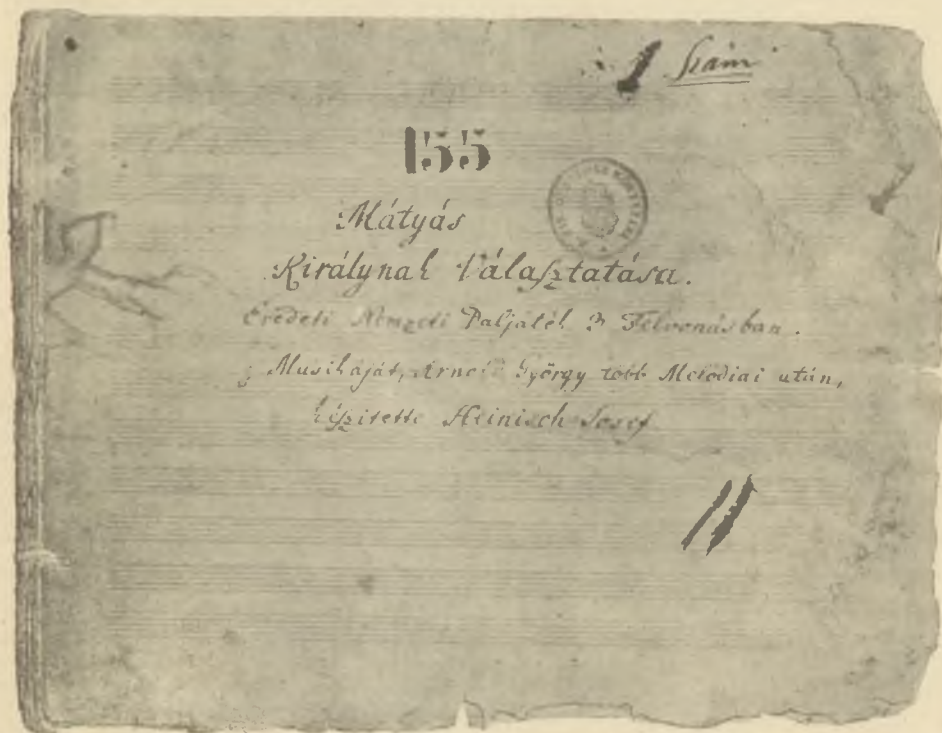 1 Szám
155
Mátyás
Királynak Választatása.
Eredeti Nemzeti Daljáték 3 Felvonásban.
Musikáját, Arnold György több Melodiai után,
készitette Heinisch Josef